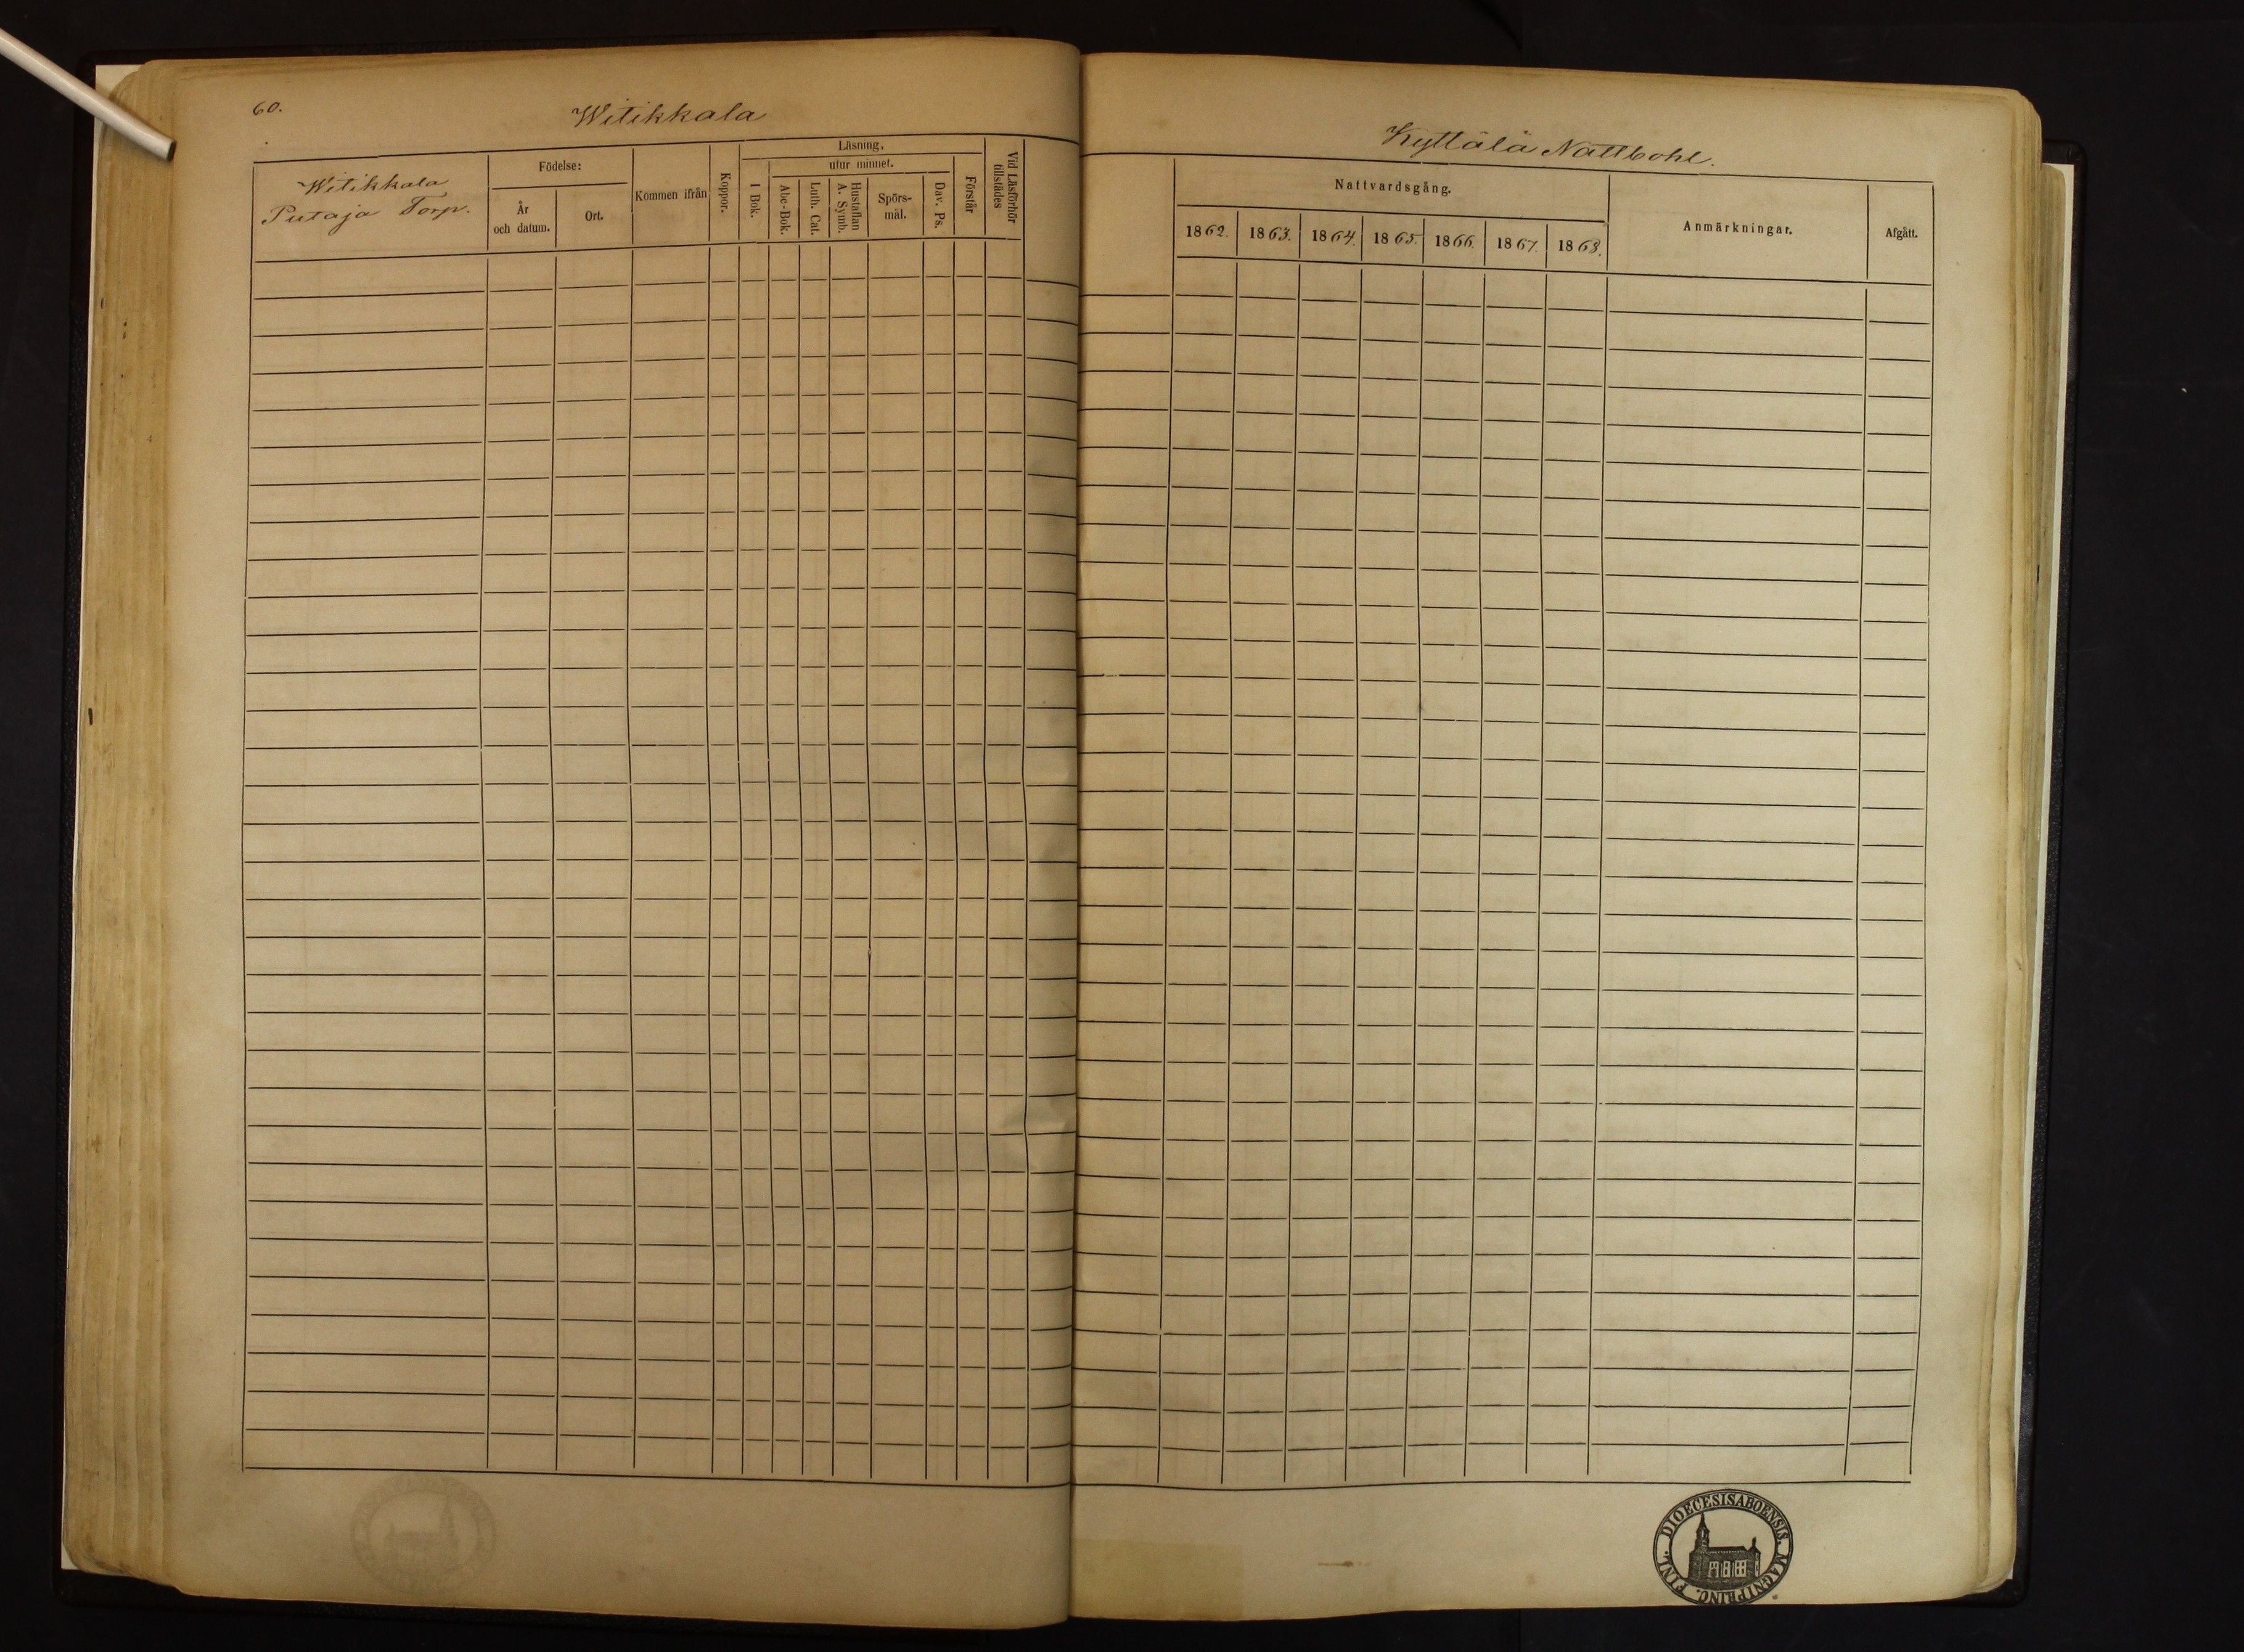 60.
Witikkala
Witikkala
Putaja Torp.
Födelse:
År
och datum.
Ort.
Kommen ifrån
Koppor.
Läsning,
I Bok.
utur minnet.
Abc-Bok.
Luth. Cat.
Hustaflan
A. Symb.
Spörs-
mål.
Dav. Ps.
Förstår
Vid Läsförhör
tillstädes
Kyttälä Nattbohl.
Nattvardsgång.
1862.
1863.
1864.
1865.
1866.
1867.
1868.
Anmärkningar.
Afgått.
DIOECESIS ABOENSIS. MAGNI PRINC. FINL.